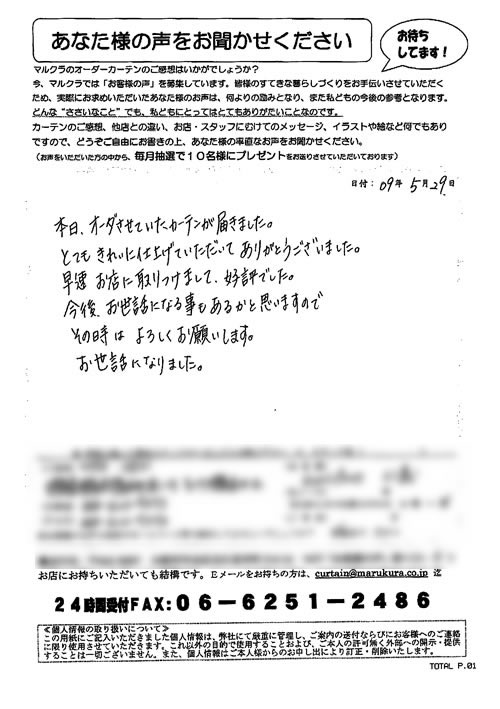 あなた様の声をお聞かせください
お待ち
してます!
マルクラのオーダーカーテンのご感想はいかがでしょうか?
今、マルクラでは「お客様の声」を募集しています。皆様のすてきな暮らしづくりをお手伝いさせていただく
ため、実際にお求めいただいたあなた様のお声は、何よりの励みとなり、また私どもの今後の参考となります。
どんな“ささいなこと”でも、私どもにとってはとてもありがたいことなのです。
カーテンのご感想、他店との違い、お店・スタッフにむけてのメッセージ、イラストや絵など何でもあり
ですので、どうぞご自由にお書きの上、あなた様の率直なお声をお聞かせください。
(お声をいただいた方の中から、毎月抽選で10名様にプレゼントをお送りさせていただいております)
日付:09年5月29日
本日、オーダさせていたカーテンが届きました。
とてもきれいに仕上げていただいてありがとうございました。
早速お店に取りつけまして、好評でした。
今後、お世話になる事もあるかと思いますので
その時はよろしくお願いします。
お世話になりました。
お店にお持ちいただいても結構です。Eメールをお持ちの方は、curtain@marukura.co.jp 迄
24時間受付FAX:06-6251-2486
≪個人情報の取り扱いについて≫
この用紙にご記入いただきました個人情報は、弊社にて厳重に管理し、ご案内の送付ならびにお客様へのご連絡
に限り使用させていただきます。これ以外の目的で使用すること および、ご本人の許可無く外部への開示・提供
することは一切ございません。また、個人情報はご本人様からのお申し出により訂正・削除いたします。
TOTAL P.01